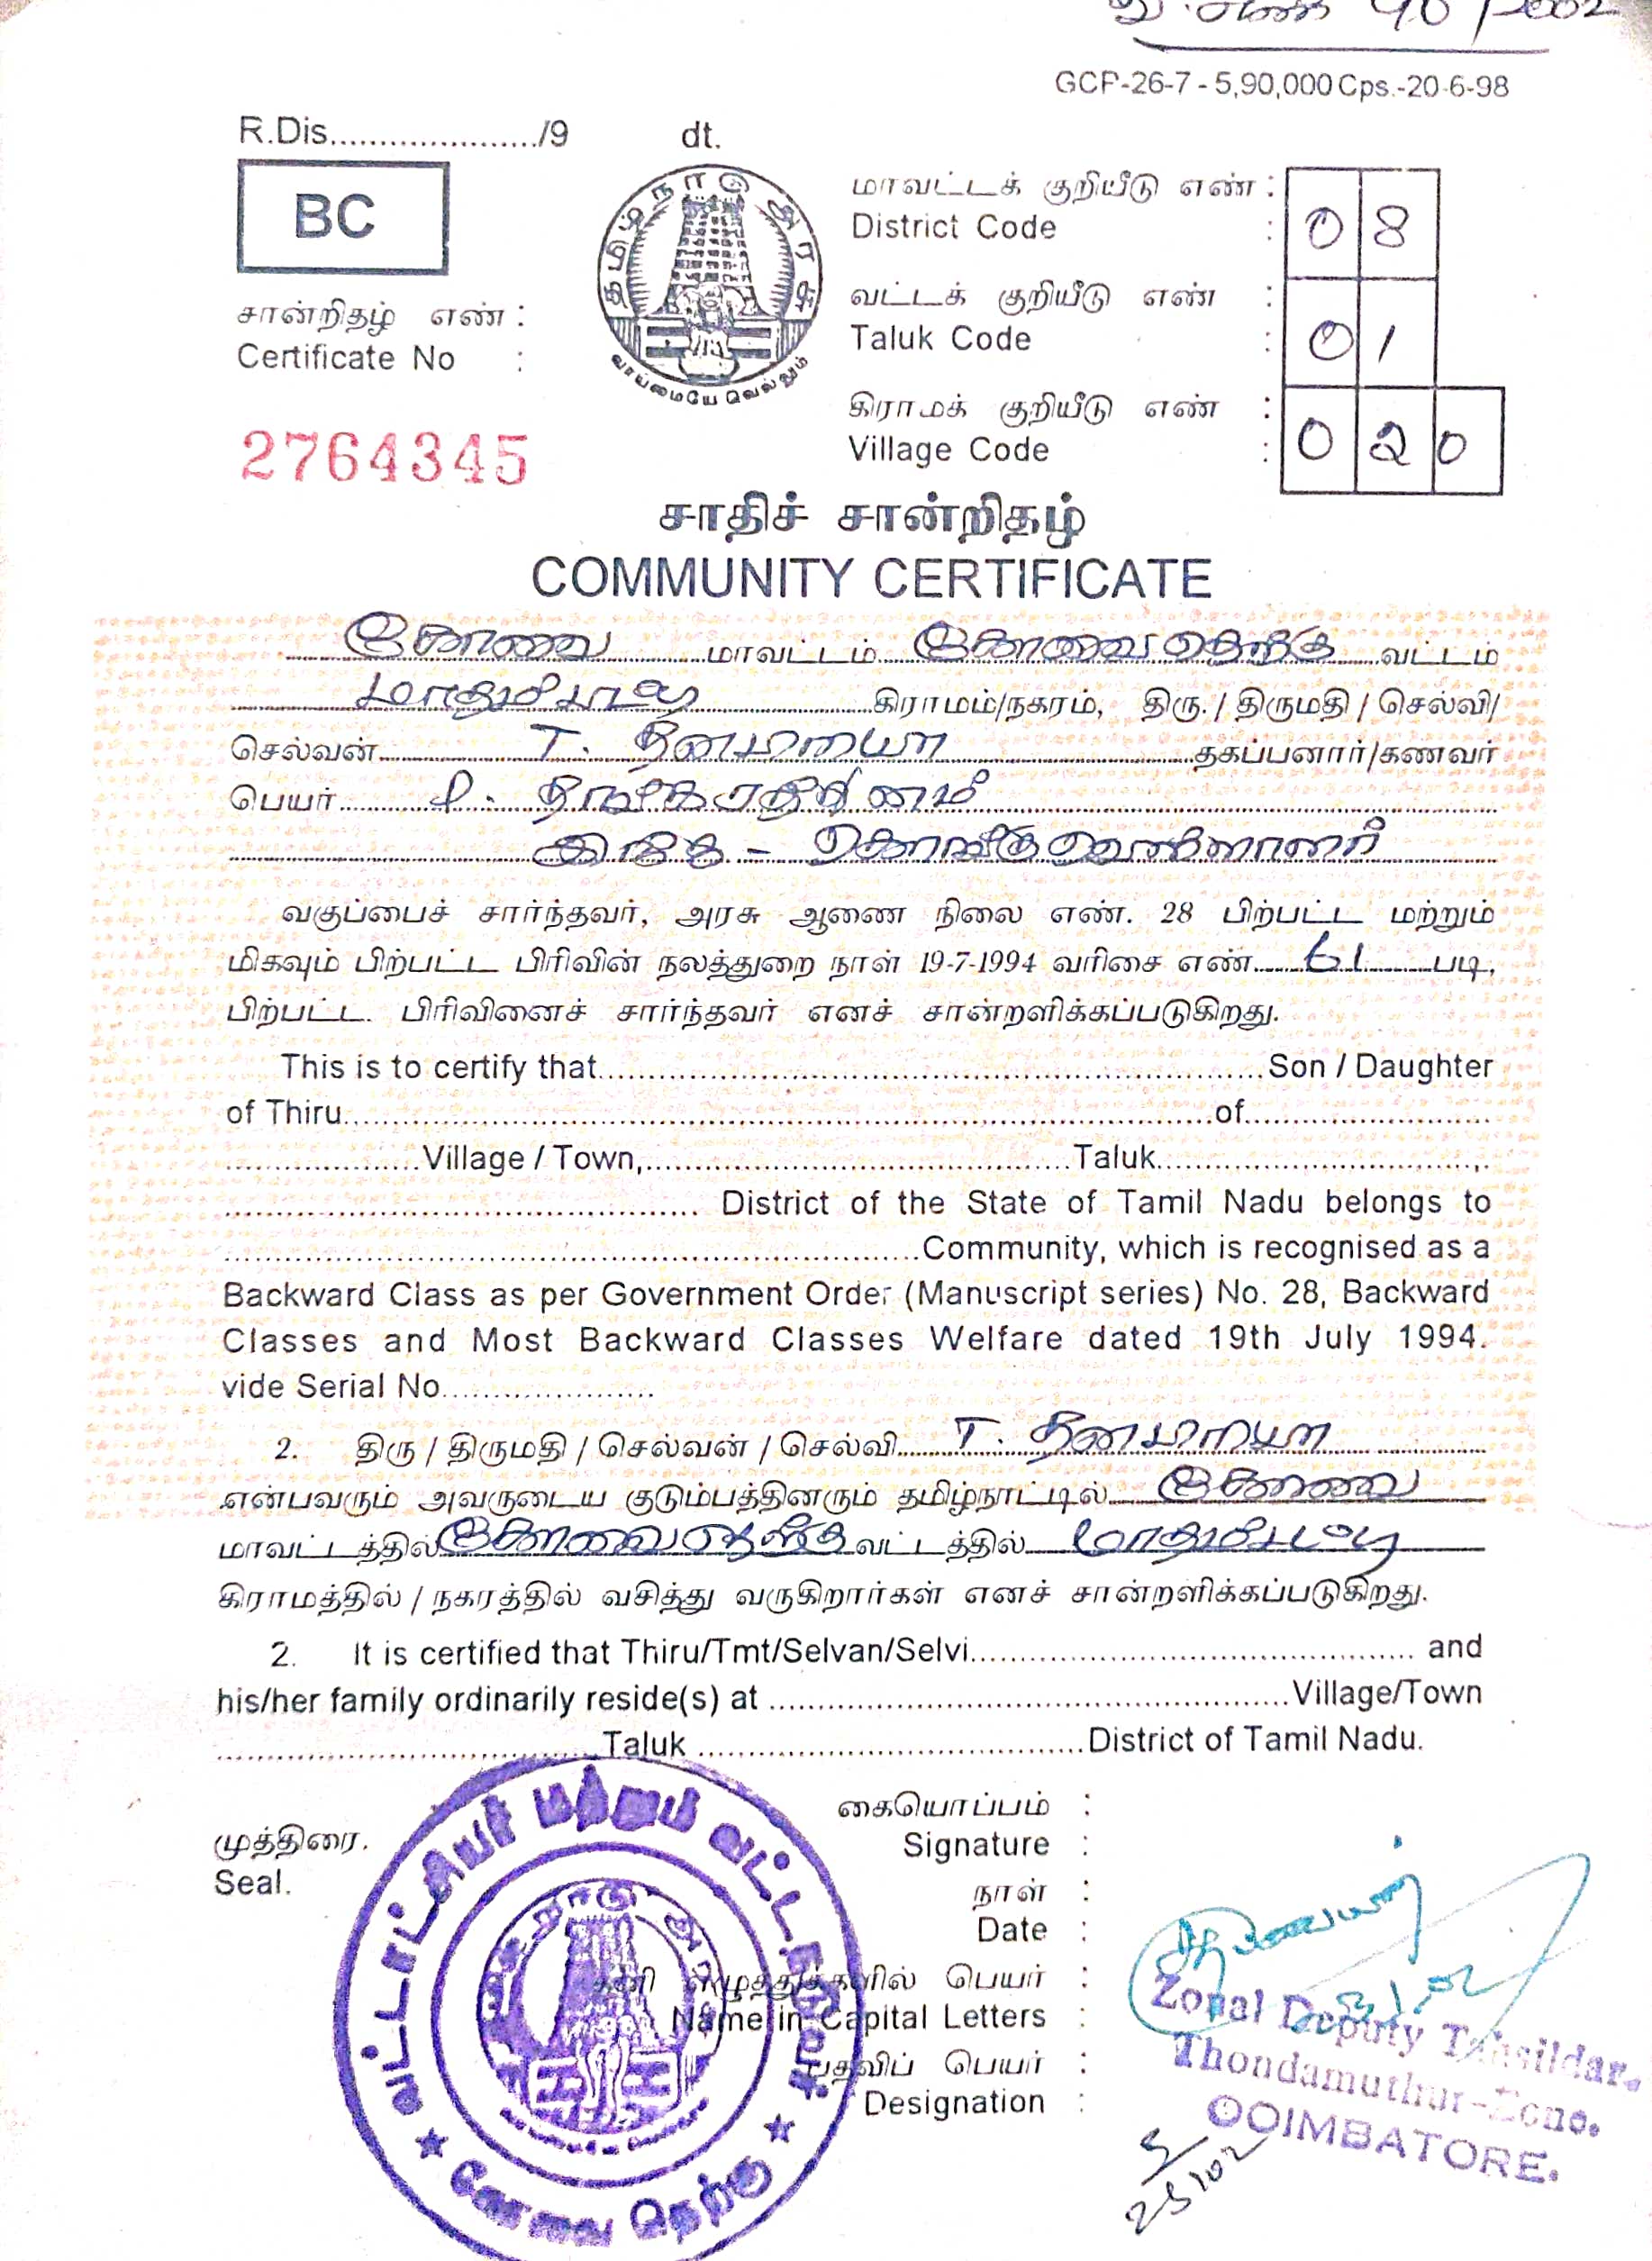 90/2002
GCP-26-7 - 5,90,000 Cps.-20-6-98
R.Dis...................../9 dt.
BC
தமிழ்நாடு அரசு
வாய்மையே வெல்லும்
மாவட்டக் குறியீடு எண் :
District Code : 0 8
சான்றிதழ் எண் :
Certificate No :
வட்டக் குறியீடு எண் :
Taluk Code : 0 1
கிராமக் குறியீடு எண் :
Village Code : 0 2 0
2764345
சாதிச் சான்றிதழ்
COMMUNITY CERTIFICATE
கோவை மாவட்டம் கோவை தெற்கு வட்டம்
மாதம்பட்டி கிராமம்/நகரம், திரு. / திருமதி / செல்வி/
செல்வன் T. தீனமாயா தகப்பனார்/கணவர்
பெயர் P. தங்கரத்தினம்
இந்து - கொங்கு வேளாளர்
வகுப்பைச் சார்ந்தவர், அரசு ஆணை நிலை எண். 28 பிற்பட்ட மற்றும்
மிகவும் பிற்பட்ட பிரிவின் நலத்துறை நாள் 19-7-1994 வரிசை எண் 61 படி,
பிற்பட்ட பிரிவினைச் சார்ந்தவர் எனச் சான்றளிக்கப்படுகிறது.
This is to certify that..............................Son / Daughter
of Thiru..............................of....................
....................Village / Town,..............................Taluk..............................,
.............................. District of the State of Tamil Nadu belongs to
..............................Community, which is recognised as a
Backward Class as per Government Order (Manuscript series) No. 28, Backward
Classes and Most Backward Classes Welfare dated 19th July 1994.
vide Serial No....................
2. திரு / திருமதி / செல்வன் / செல்வி T. தீனமாயா
என்பவரும் அவருடைய குடும்பத்தினரும் தமிழ்நாட்டில் கோவை
மாவட்டத்தில் கோவை தெற்கு வட்டத்தில் மாதம்பட்டி
கிராமத்தில் / நகரத்தில் வசித்து வருகிறார்கள் எனச் சான்றளிக்கப்படுகிறது.
2. It is certified that Thiru/Tmt/Selvan/Selvi.............................. and
his/her family ordinarily reside(s) at ..............................Village/Town
..............................Taluk ..............................District of Tamil Nadu.
கையொப்பம் :
முத்திரை. Signature :
Seal. நாள் :
Date :
தனி எழுத்துக்களில் பெயர் :
Name in Capital Letters :
பதவிப் பெயர் :
Designation :
வட்டாட்சியர் மற்றும் வட்ட
கோவை தெற்கு
Zonal Deputy Tahsildar.
Thondamuthur-Zone.
COIMBATORE.